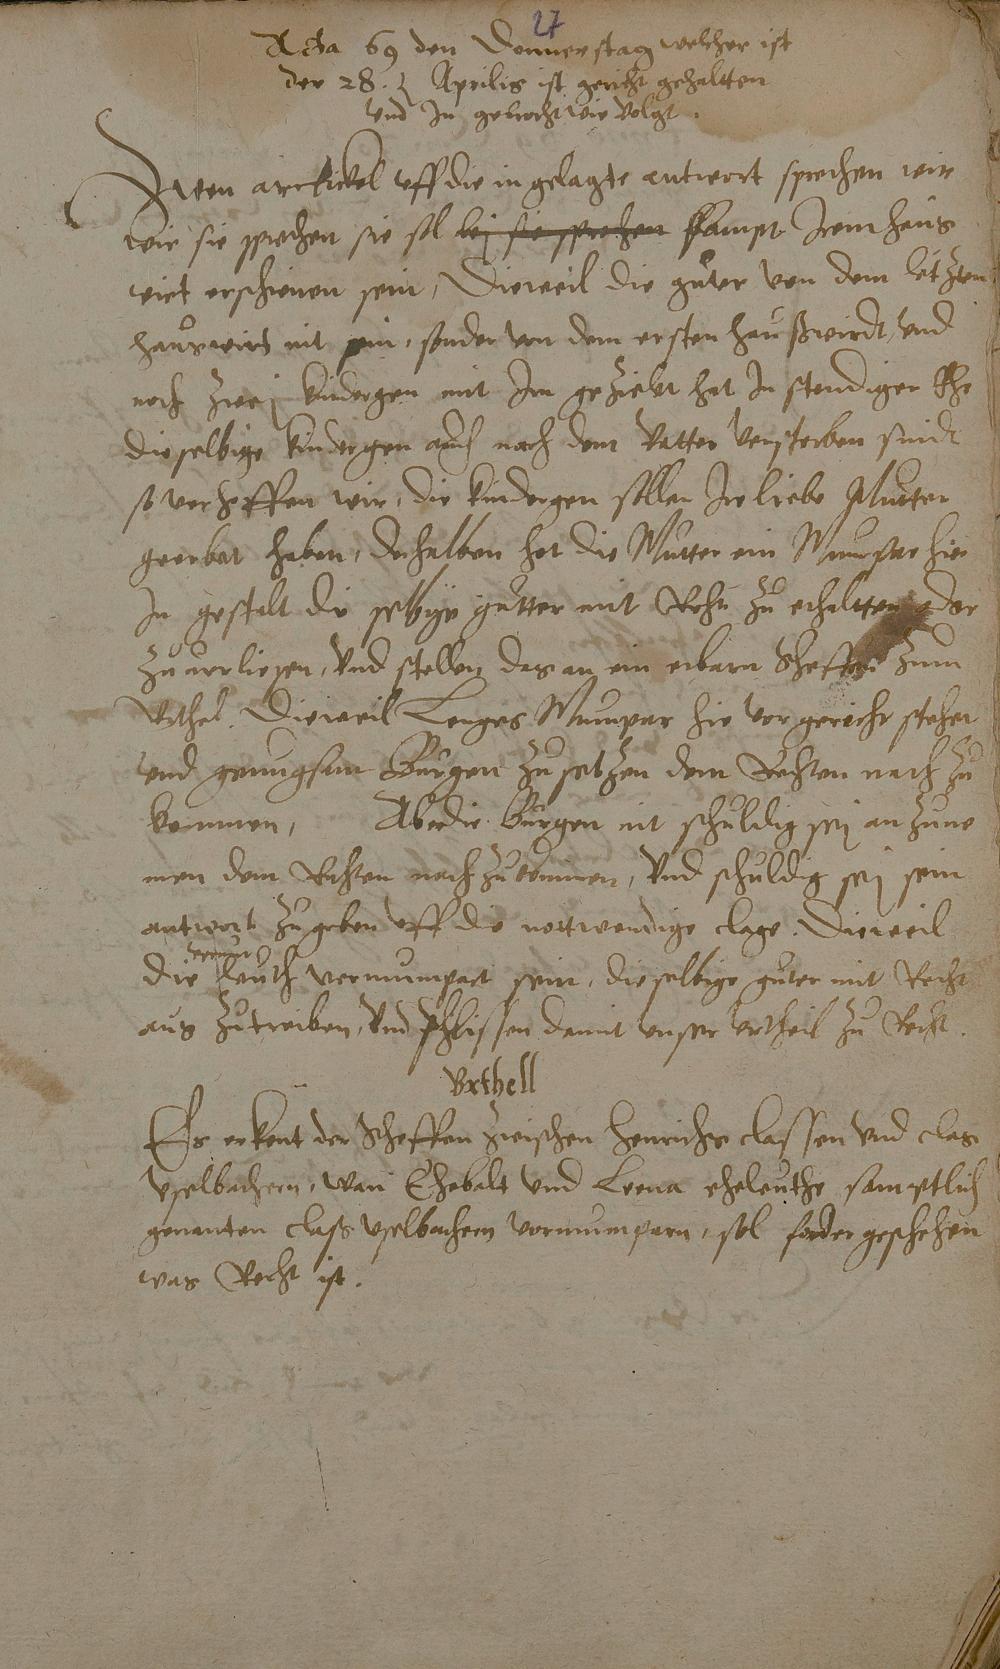 27
Acta 69 den Donnerstag welcher ist
der 28. Aprilis ist gericht gehaltten
vnd In gebrocht wie volgt.
arttickel vff die in gelagte antwort sprechen wir
wie sie sprechen sie sol bej sie sprechen sampt Irem haus
wirt erschienen sein, Dieweil die guter von dem letzten
hauswirt nit sein, sonder von dem ersten haußwirdt, vnd
noch zwej kindergen mit Im gezielet hat In stendiger Ehe
dieselbige kindergen auch nach dem vatter verstorben sindt
so verhoffen wir, die kindergen sollen Ire liebe Mutter
geerbet haben, derhalben hat die Mutter ein Mumpar hie
In gestalt die selbige gutter mit Recht zu erhaltten oder
zu verliesen, vnd stellen das an ein erbarn Scheffen zum
Vrthel. Dieweil Lenges Mumpar hie vor gericht stehet
vnd genugsam Burgen zu setzen dem Rechten nach zu
kommen, Aber die Burgen nit schuldig sej an zune
men dem Rechten nach zukommen, vnd schuldig sej sein
antwort zu geben vff die nottwendige clage. Dieweil
die leuth vermumpart sein, dieselbige guter mit Recht
aus zutreiben, vnd schlissen damit vnser vrtheil zu Recht.
Vrthell
Es erkent der Scheffen zwischen Henriches classen vnd clas
vselbachern, wan Thebalt vnd Leena eheleuthe samptlich
genanten class vselbachern vermumparn, sol forder geschehen
was Recht ist.